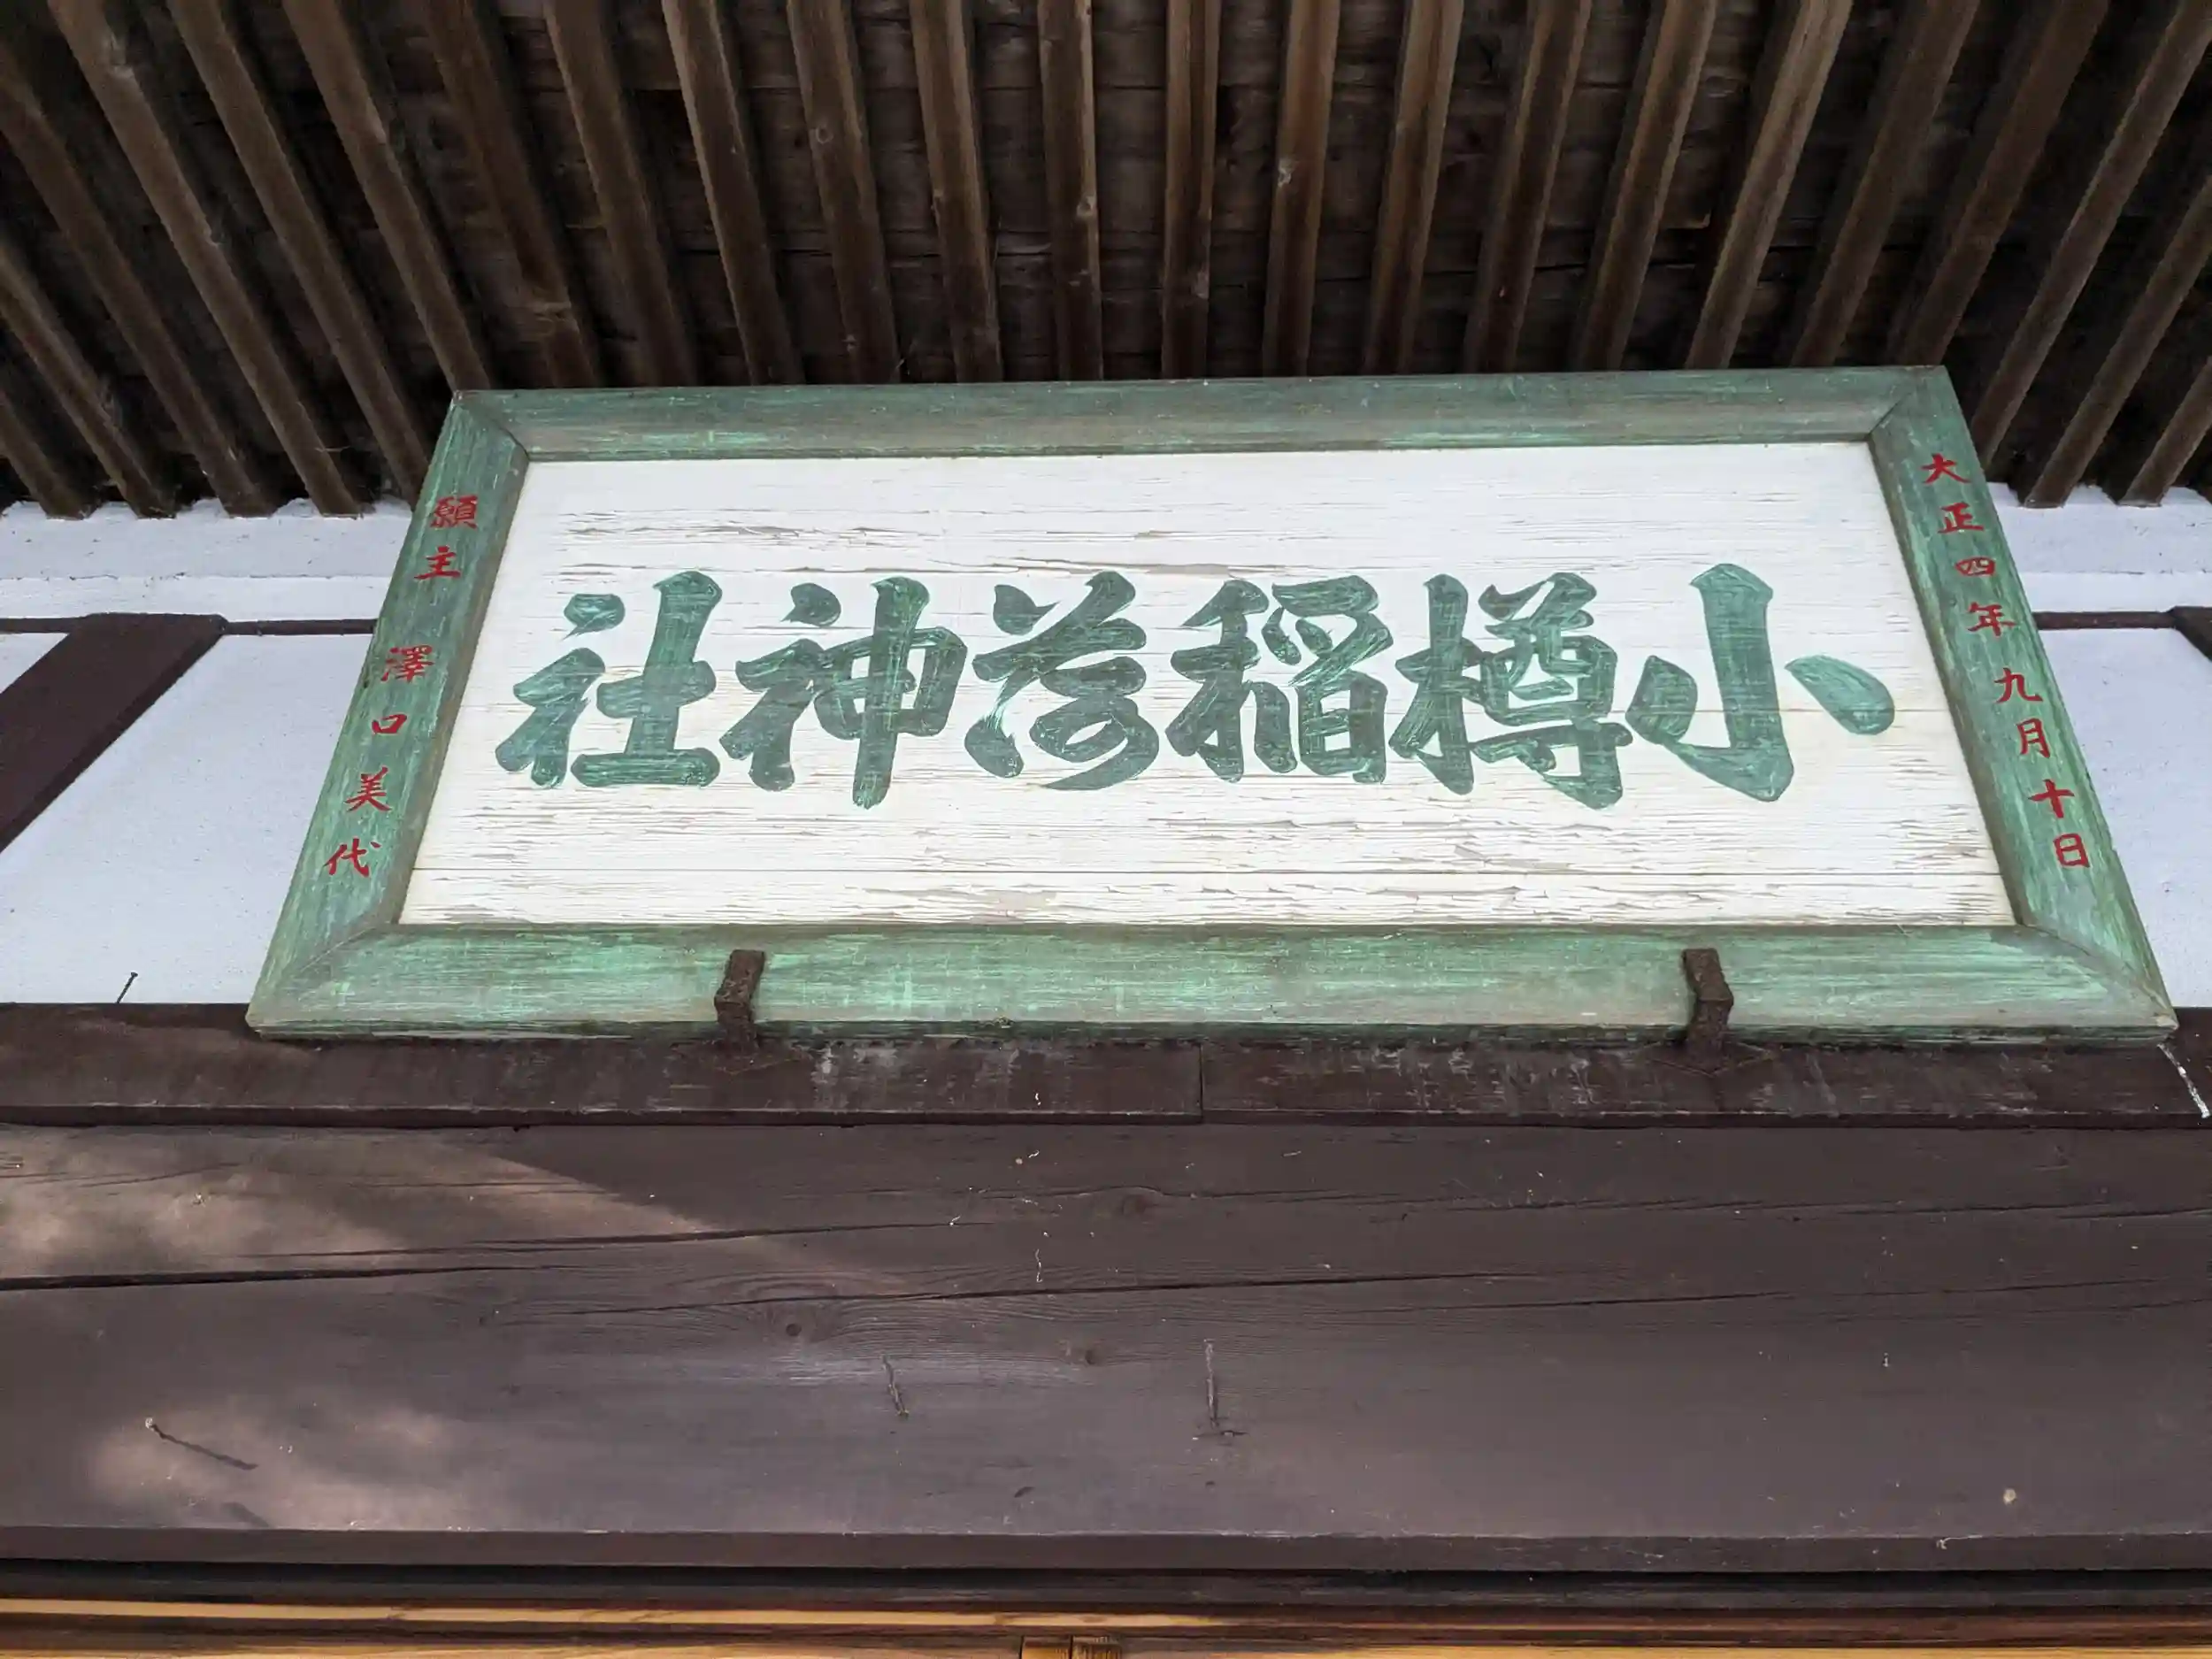 小樽稲荷神社
大正四年九月十日
願主 澤口美代